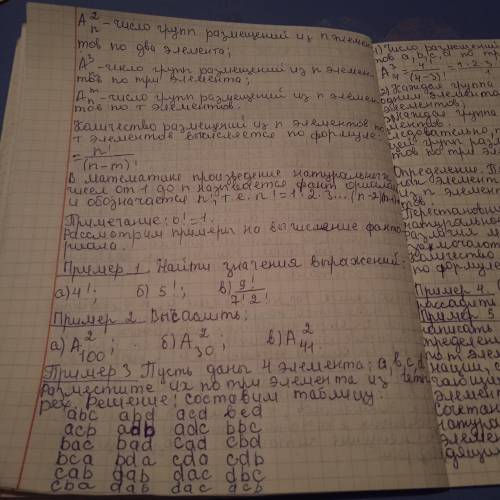 A²ₙ - число групп размещений из n элемен
тов по два элемента;
A³ - число групп размещений из n элемен-
тов по три элемента;
Aᵐₙ - число групп размещений из n элемен-
тов по m элементов.
Количество размещений из n элементов по
m элементов вычисляется по формуле:
= n! / (n-m)!
В математике произведение натуральных
чисел от 1 до n называется факториалом
и обозначается n!, т.е. n! = 1·2·3...(n-2)(n-1)n
Примечание: 0! = 1.
Рассмотрим примеры на вычисление факто
риала.
Пример 1. Найти значения выражений:
а) 4!; б) 5!; в) 9! / 7!2!
Пример 2 Вычислить:
а) A²₁₀₀; б) A²₃₀; в) A²₄₁.
Пример 3 Пусть даны 4 элемента: a, b, c, d
Разместите их по три элемента из четы
рех. Решение: составим таблицу:
abc abd acd bcd
acb adb adc bbc
bac bad cad cbd
bca bda cda cdb
cab dab dac dbc
cba dab dac dcb
1) Число размещений
тов a, b, c, d по три
A³₄ = 4! / (4-3)! = 1·2·3 / 1
2) Каждая группа
одним элементо
элементов;
3) Каждая группа
ментов
следовательно,
цем групп разм
тов по три элем
Определение.
элемент
n элемент
Перестановки
натурально
различия
количество
по формуле
Пример 4.
рассадить
Пример 5
написать
определени
по m элем
нации,
элемент
сочетани
натурал
элемен